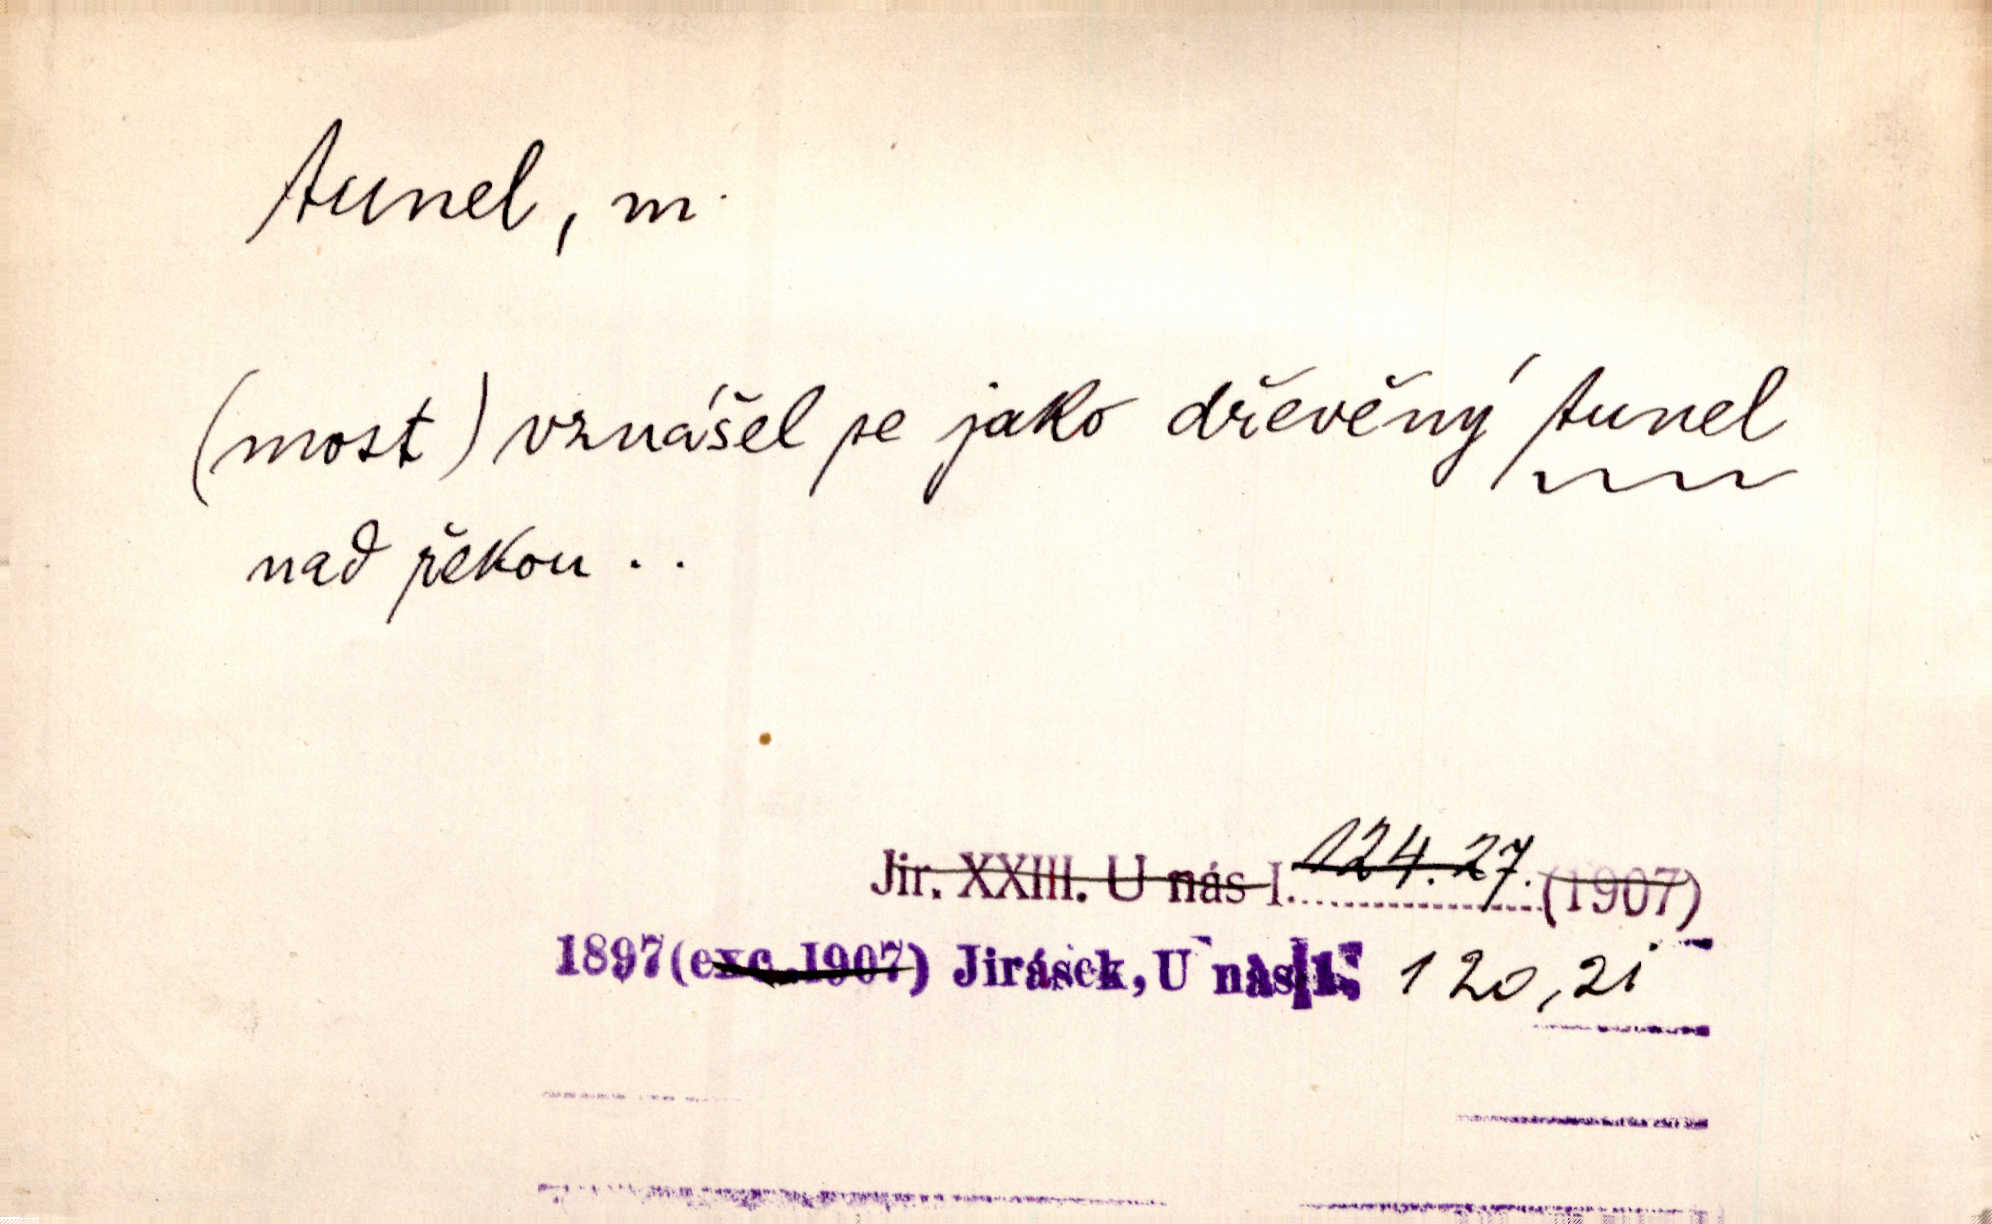 tunel, m.
(most) vznášel se jako dřevěný tunel
nad řekou . .
Jir. XXIII. U nás I. 124.27. (1907)
1897 (exc. 1907) Jirásek, U nás I, 120, 21